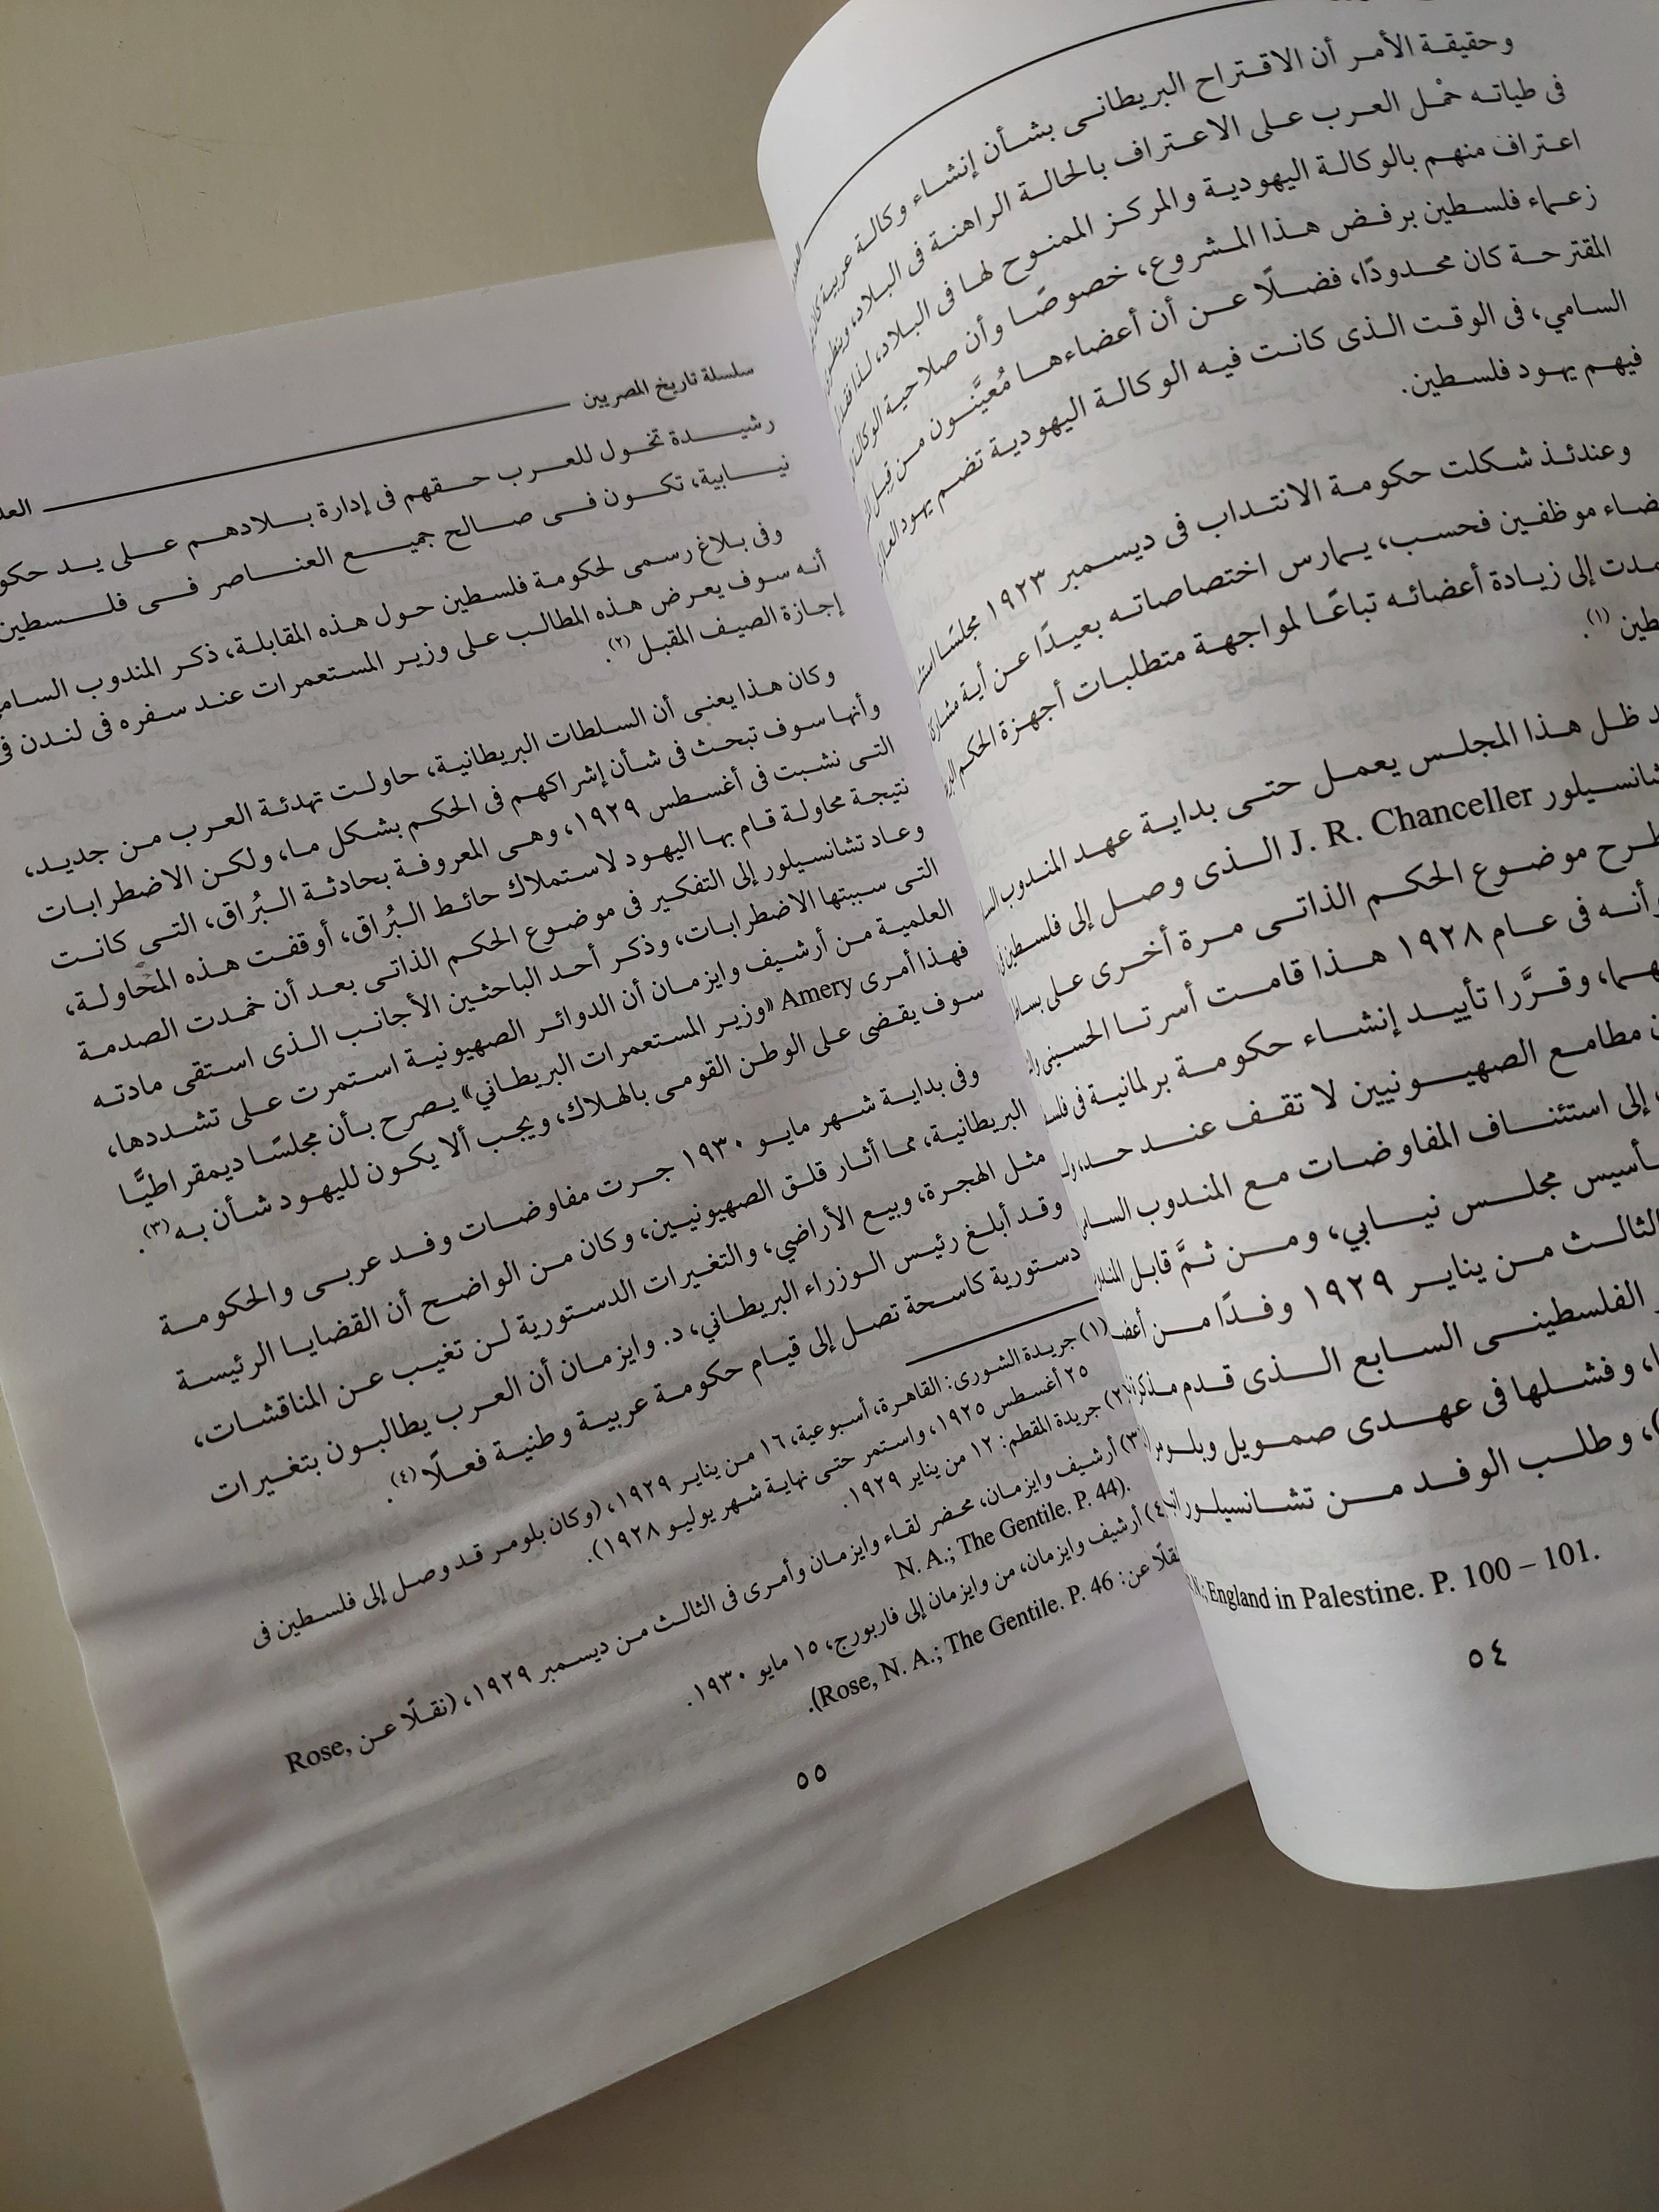 وحقيقة الأمر أن الاقتراح البريطانى بشأن إنشاء وكالة عربية
فى طياته حمْل العرب على الاعتراف بالحالة الراهنة فى البلاد،
اعتراف منهم بالوكالة اليهودية والمركز الممنوح لها فى البلاد، لذا
زعماء فلسطين برفض هذا المشروع، خصوصًا وأن صلاحية الوكالة
المقترحة كان محدودًا، فضلًا عن أن أعضاءها مُعيَّنون من قِبل
السامي، فى الوقت الذى كانت فيه الوكالة اليهودية تضم يهود
فيهم يهود فلسطين.
وعندئذ شكلت حكومة الانتداب فى ديسمبر ١٩٢٣ مجلسًا
موظفين فحسب، يمارس اختصاصاته بعيدًا عن أية
إلى زيادة أعضائه تباعًا لمواجهة متطلبات أجهزة الحكم
(١).
ظل هذا المجلس يعمل حتى بداية عهد المندوب
J. R. Chanceller الذى وصل إلى فلسطين
موضوع الحكم الذاتى مرة أخرى على
وأنه فى عام ١٩٢٨ هذا قامت أسرتا الحسينى
وقرَّرا تأييد إنشاء حكومة برلمانية فى
مطامع الصهيونيين لا تقف عند حد،
إلى استئناف المفاوضات مع المندوب
مجلس نيابي، ومن ثمَّ قابل
الثالث من يناير ١٩٢٩ وفدًا من
الفلسطينى السابع الذى قدم
وفشلها فى عهدى صمويل
وطلب الوفد من تشانسيلور
England in Palestine. P. 100 – 101.
٥٤
سلسلة تاريخ المصريين
رشيدة تخول للعرب حقهم فى إدارة بلادهم على يد
نيابية، تكون فى صالح جميع العناصر فى
وفى بلاغ رسمى لحكومة فلسطين حول هذه المقابلة، ذكر المندوب
أنه سوف يعرض هذه المطالب على وزير المستعمرات عند سفره فى لندن
إجازة الصيف المقبل (٢).
وكان هذا يعنى أن السلطات البريطانية، حاولت تهدئة العرب من جديد،
وأنها سوف تبحث فى شأن إشراكهم فى الحكم بشكل ما، ولكن الاضطرابات
التى نشبت فى أغسطس ١٩٢٩، وهى المعروفة بحادثة البُراق، التى كانت
نتيجة محاولة قام بها اليهود لاستملاك حائط البُراق، أوقفت هذه المحاولة،
وعاد تشانسيلور إلى التفكير فى موضوع الحكم الذاتى بعد أن خمدت الصدمة
التى سببتها الاضطرابات، وذكر أحد الباحثين الأجانب الذى استقى مادته
العلمية من أرشيف وايزمان أن الدوائر الصهيونية استمرت على تشددها،
فهذا أمرى Amery «وزير المستعمرات البريطاني» يصرح بأن مجلسًا ديمقراطيًّا
سوف يقضى على الوطن القومى بالهلاك، ويجب ألا يكون لليهود شأن به (٣).
وفى بداية شهر مايو ١٩٣٠ جرت مفاوضات وفد عربى والحكومة
البريطانية، مما أثار قلق الصهيونيين، وكان من الواضح أن القضايا الرئيسة
مثل الهجرة، وبيع الأراضي، والتغيرات الدستورية لن تغيب عن المناقشات،
وقد أبلغ رئيس الوزراء البريطاني، د. وايزمان أن العرب يطالبون بتغيرات
دستورية كاسحة تصل إلى قيام حكومة عربية وطنية فعلًا (٤).
(١) جريدة الشورى: القاهرة، أسبوعية، ١٦ من يناير ١٩٢٩، (وكان بلومر قد وصل إلى فلسطين فى
٢٥ أغسطس ١٩٢٥، واستمر حتى نهاية شهر يوليو ١٩٢٨).
(٢) جريدة المقطم: ١٢ من يناير ١٩٢٩.
(٣) أرشيف وايزمان، محضر لقاء وايزمان وأمرى فى الثالث من ديسمبر ١٩٢٩، (نقلًا عن Rose,
N. A.; The Gentile. P. 44).
(٤) أرشيف وايزمان، من وايزمان إلى فاربورج، ١٥ مايو ١٩٣٠.
نقلًا عن: Rose, N. A.; The Gentile. P. 46).
٥٥